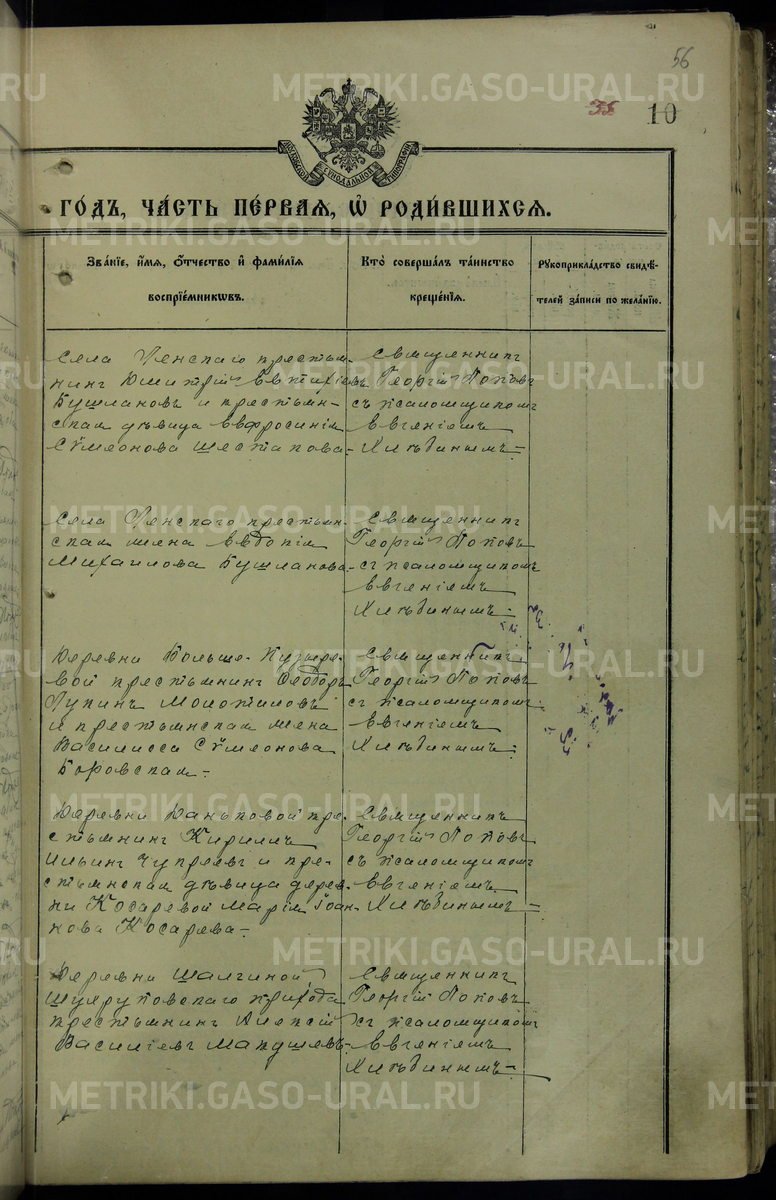 56
35 10
МОСКОВСКОЙ СѴНОДАЛЬНОЙ ТИПОГРАФІИ
ГОДЪ, ЧАСТЬ ПЕРВАЯ, Ѡ РОДИВШИХСЯ.
Званіе, имя, отчество и фамилія воспріемниковъ.
Кто совершалъ таинство крещенія.
Рукоприкладство свидѣтелей записи по желанію.
Села Ченскаго крестья-
нинъ Дмитрій Евтихіевъ
Бушлановъ и крестьян-
ская дѣвица Евфросинія
Сѵмеонова Шестакова-
Священникъ
Георгій Поповъ
съ псаломщикомъ
Евгеніемъ
Хлѣбинымъ-
Села Ченскаго крестьян-
ская жена Евдокія
Михаилова Бушланова-
Священникъ
Георгій Поповъ
съ псаломщикомъ
Евгеніемъ
Хлѣбинымъ-
Деревни Больше-
вой крестьянинъ Ѳеодоръ
Лукинъ Молотиловъ
и крестьянская жена
Василисса Сѵмеонова
Боровская-
Священникъ
Георгій Поповъ
съ псаломщикомъ
Евгеніемъ
Хлѣбинымъ-
Деревни Даньковой кре-
стьянинъ Кириллъ
Ильинъ Чупреевъ и кре-
стьянская дѣвица дерев-
ни Косаревой Марія Іоан-
нова Косарева-
Священникъ
Георгій Поповъ
съ псаломщикомъ
Евгеніемъ
Хлѣбинымъ-
Деревни Шалгиной,
прихода
крестьянинъ Алексій
Василіевъ Макушевъ-
Священникъ
Георгій Поповъ
съ псаломщикомъ
Евгеніемъ
Хлѣбинымъ-
METRIKI.GASO-URAL.RU